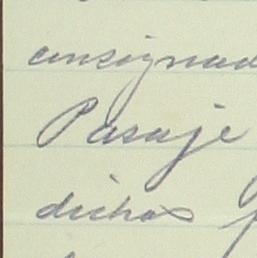 consignad
Pasaje
dichos